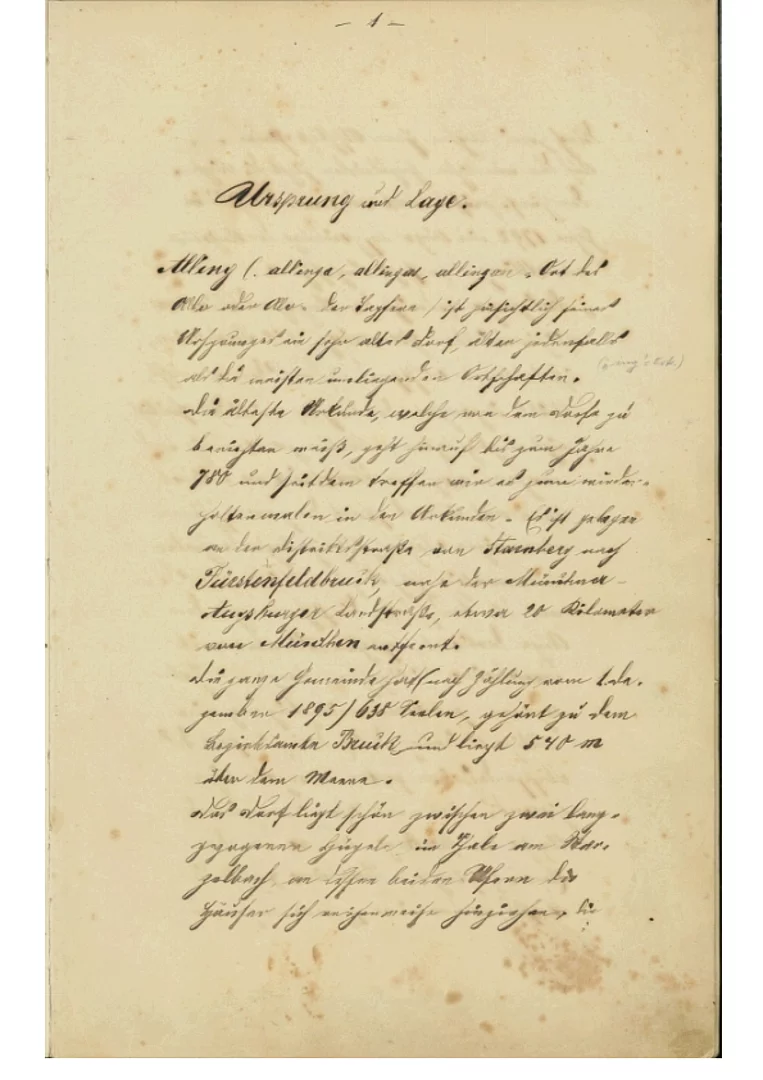 – 1 –
Ursprung und Lage.
Alling (: allinga, allingas, allingan, Ort des
Allo oder Alo, der Tapfere / ist hinsichtlich seines
Ursprunges ein sehr altes Dorf, älter jedenfalls
als die meisten umliegenden Ortschaften.
Die älteste Urkunde, welche von dem Dorfe zu
berichten weiß, geht hinauf bis zum Jahre
780 und seitdem treffen wir es zum wieder-
holtenmalen in den Urkunden. Es ist gelegen
an der Distriktsstraße von Starnberg nach
Fürstenfeldbruck, nahe der Münchner-
Augsburger Landstraße, etwa 20 Kilometer
von München entfernt.
Die ganze Gemeinde hat (nach Zählung vom 1. De-
zember 1895) 638 Seelen, gehört zu dem
Bezirksamte Bruck und liegt 540 m
über dem Meere.
Das Dorf liegt schön zwischen zwei lang-
gezogenen Hügeln im Thale am Star-
zelbach, an dessen beiden Ufern die
Häuser sich reihenweise hinziehen, die